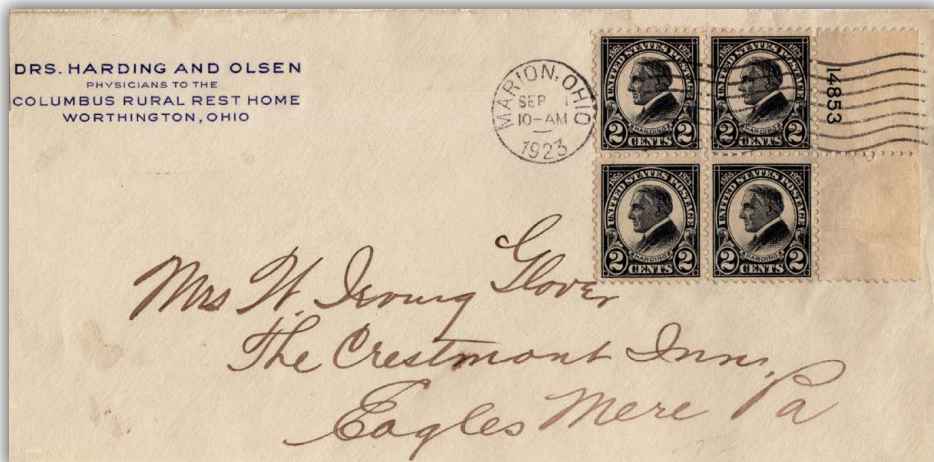 DRS. HARDING AND OLSEN
PHYSICIANS TO THE
COLUMBUS RURAL REST HOME
WORTHINGTON, OHIO
MARION, OHIO
SEP 1
10-AM
1923
1865 1923
UNITED STATES POSTAGE
HARDING
2 CENTS 2
1865 1923
UNITED STATES POSTAGE
HARDING
2 CENTS 2
14853
1865 1923
UNITED STATES POSTAGE
HARDING
2 CENTS 2
1865 1923
UNITED STATES POSTAGE
HARDING
2 CENTS 2
Mrs W. Irving Glover
The Crestmont Inn,
Eagles Mere Pa